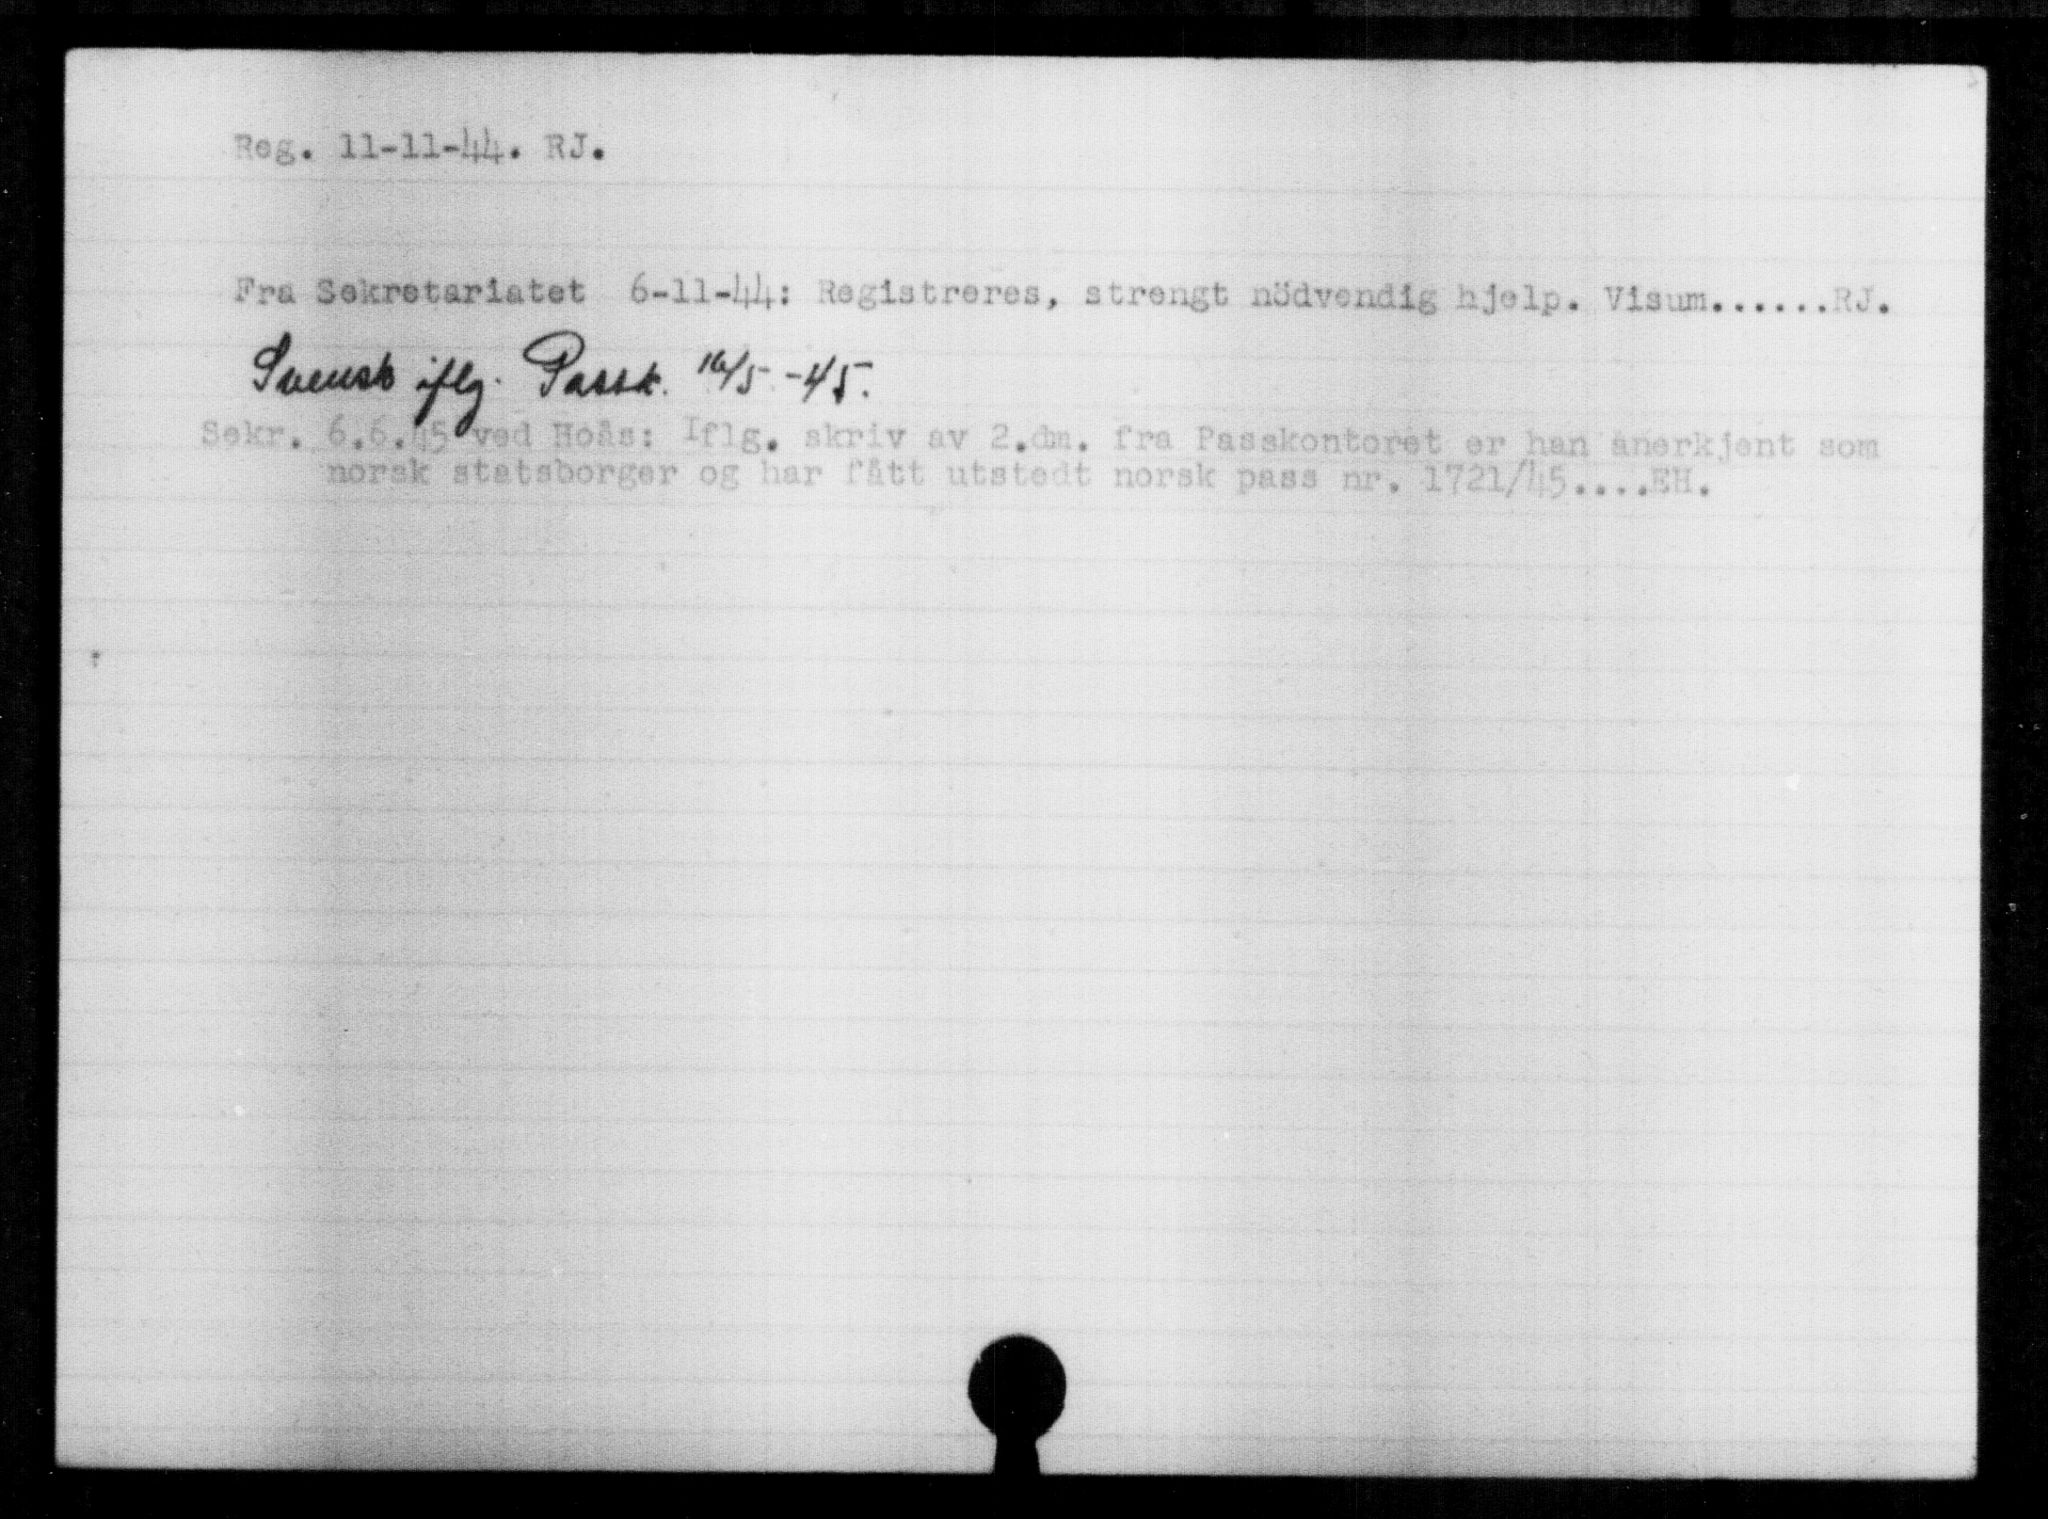 Reg. 11-11-44. RJ.
Fra Sekretariatet 6-11-44: Registreres, strengt nödvendig hjelp. Visum......RJ.
Svensk iflg. Passk. 16/5-45.
Sekr. 6.6.45 ved Hoås: Iflg. skriv av 2.dm. fra Passkontoret er han anerkjent som
norsk statsborger og har fått utstedt norsk pass nr. 1721/45....EH.